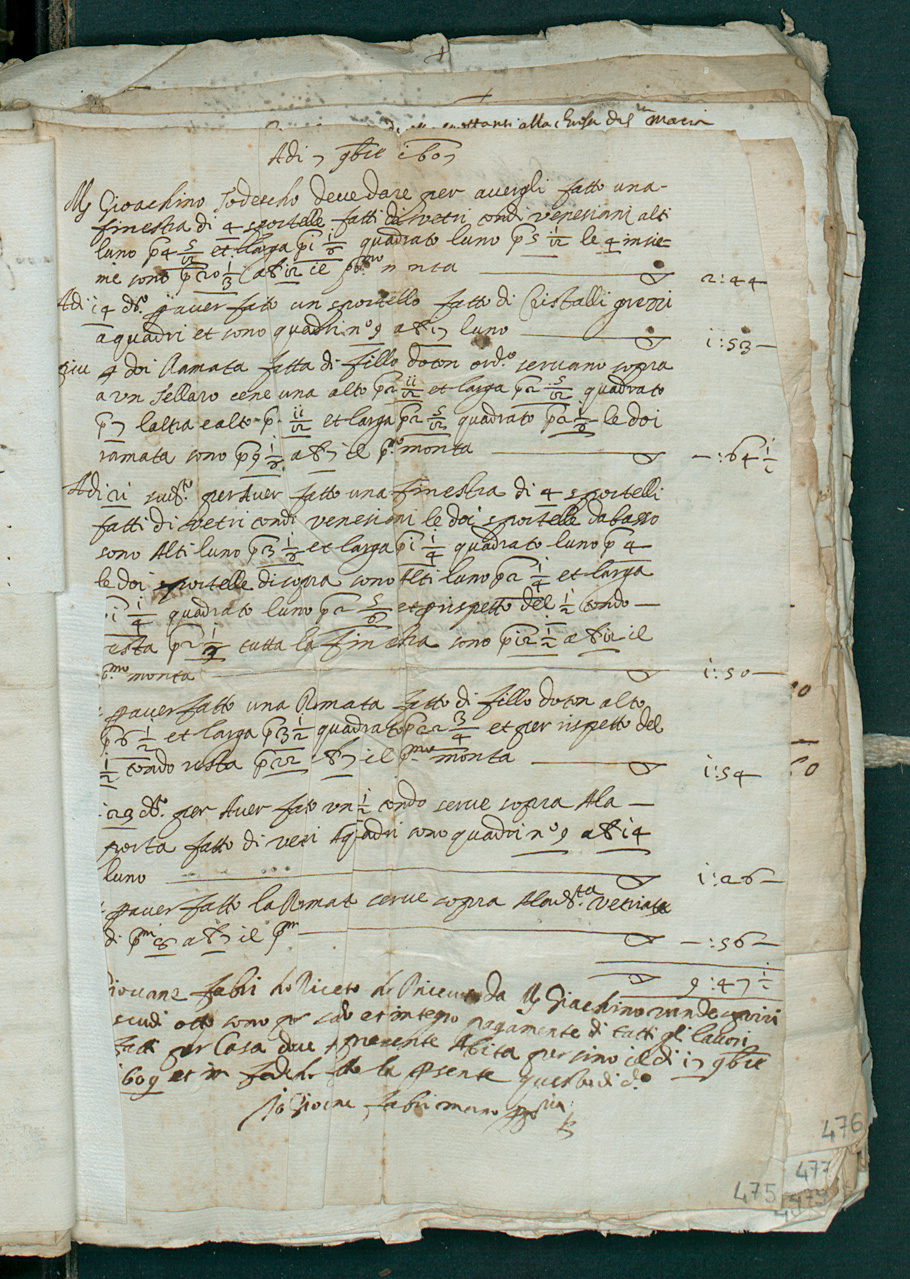 alla chiesa di S. Maria
Adi 7 9bre 1607
Mr Gioachino Todescho deve dare per avergli fatto una
finestra di 4 sportelle fatti di vetri tondi venetiani alti
luno p 4 5/12 et larga p 1 1/6 quadrato luno p 5 1/12 le 4 insie-
me sono p 20 1/3 a 12 il monta 2:44
Adi 14 do. p aver fatto un sportello fatto di Cristalli grezzi
a quadri et sono quadri no 9 a 17 luno 1:53
piu p doi Ramata fatta di fillo doton servano sopra
a un Tellaro cene una alto p 2 11/12 et larga p 2 5/12 quadrato
p 7 laltra e alto p 11/12 et larga p 2 5/12 quadrato p 2 le doi
ramata sono p 9 1/6 a 7 il po monta -:64 1/2
Adi 21 per aver fatto una finestra di 4 sportelli
fatti di vetri tondi venetiani le doi sportelle da basso
sono Alti luno p 3 1/6 et larga p 1 1/4 quadrato luno p 4
le doi sportelle di sopra sono Alti luno p 2 1/4 et larga
1 1/4 quadrato luno p 2 5/6 et p rispetto del 1/2 tondo
resta p 2 tutta la finestra sono p 12 1/2 a 12 il
pmo monta 1:50
p aver fatto una Ramata fatto di fillo doton alto
p 6 1/2 et larga p 3 1/2 quadrato p 22 3/4 et per rispetto del
1/2 tondo resta p 22 a 7 il pmo monta 1:54
23 do. per Aver fato un 1/2 tondo serve sopra Ala
porta fatto di veri Aquadri sono quadri no 9 a 14
luno 1:26
p aver fatto la Ramata serve sopra Ala vetriata
di pm 8 a 7 il pm -:56
9:47 1/2
Giovane fabri ho Riceto da Mr Giachino
scudi otto sono per saldo et integro pagamente di tutti gli lavori
fatti per Casa dove Al presente Abita per sino il di 17 9bre
1609 et in fede ho fatto la presente questo di do
Io Giovane fabri mano ppria
476
477
475